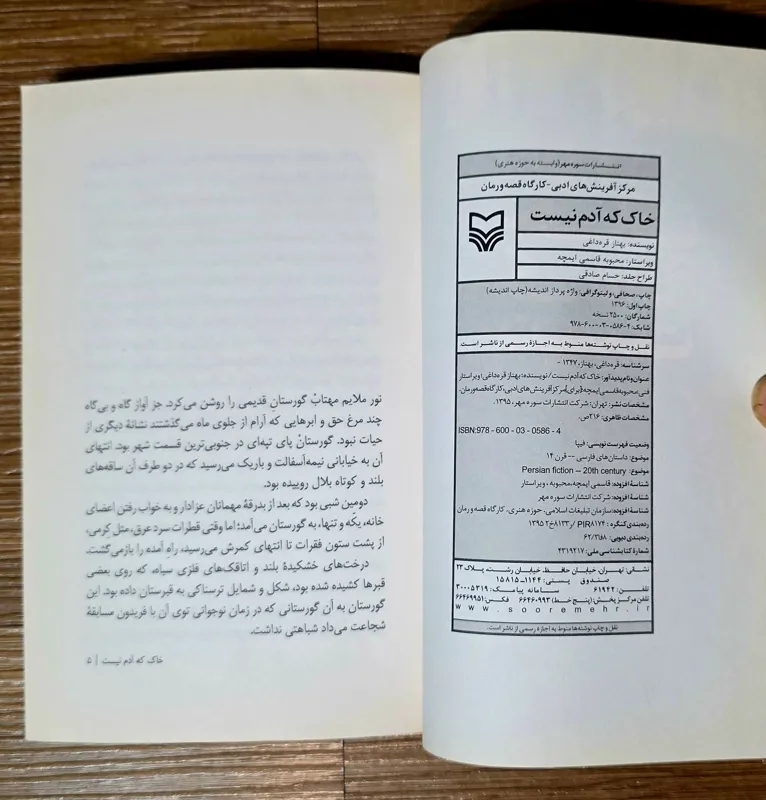 انتشارات سوره مهر (وابسته به حوزه هنری)
مرکز آفرینش‌های ادبی - کارگاه قصه و رمان
خاک که آدم نیست
نویسنده: بهناز قره‌داغی
ویراستار: محبوبه قاسمی ایمچه
طراح جلد: حسام صادقی
چاپ، صحافی و لیتوگرافی: واژه پرداز اندیشه (چاپ اندیشه)
چاپ اول: ۱۳۹۶
شمارگان: ۲۵۰۰ نسخه
شابک: ۴-۰۵۸۶-۰۳-۶۰۰-۹۷۸
نقل و چاپ نوشته‌ها منوط به اجازهٔ رسمی از ناشر است.
سرشناسه: قره‌داغی، بهناز، ۱۳۴۷ -
عنوان و نام پدیدآور: خاک که آدم نیست/ نویسنده: بهناز قره‌داغی؛ ویراستار
فنی محبوبه قاسمی ایمچه؛ [برای] مرکز آفرینش‌های ادبی، کارگاه قصه و رمان.
مشخصات نشر: تهران: شرکت انتشارات سوره مهر، ۱۳۹۵.
مشخصات ظاهری: ۲۱۶ص.
ISBN:978 - 600 - 03 - 0586 - 4
وضعیت فهرست‌نویسی: فیپا
موضوع: داستان‌های فارسی -- قرن ۱۴
موضوع: Persian fiction -- 20th century
شناسهٔ افزوده: قاسمی ایمچه، محبوبه، ویراستار
شناسهٔ افزوده: شرکت انتشارات سوره مهر
شناسهٔ افزوده: سازمان تبلیغات اسلامی، حوزه هنری، کارگاه قصه و رمان
رده‌بندی کنگره: PIR۸۱۷۴/ ر۸۱۳۳خ۲ ۱۳۹۵
رده‌بندی دیویی: ۸فا۳/۶۲
شمارهٔ کتابشناسی ملی: ۴۳۱۹۲۱۷
نشانی: تهران، خیابان حافظ، خیابان رشت، پلاک ۲۳
صندوق پستی: ۱۱۴۴-۱۵۸۱۵
تلفن: ۶۱۹۴۲ سامانه پیامک: ۳۰۰۰۵۳۱۹
تلفن مرکز پخش: (پنج خط) ۶۶۴۶۰۹۹۳ فکس: ۶۶۴۶۹۹۵۱
www.sooremehr.ir
نقل و چاپ نوشته‌ها منوط به اجازهٔ رسمی از ناشر است.
نور ملایم مهتاب گورستانِ قدیمی را روشن می‌کرد. جز آواز گاه و بی‌گاه
چند مرغ حق و ابرهایی که آرام از جلوی ماه می‌گذشتند نشانهٔ دیگری از
حیات نبود. گورستان پای تپه‌ای در جنوبی‌ترین قسمت شهر بود. انتهای
آن به خیابانی نیمه‌آسفالت و باریک می‌رسید که در دو طرف آن ساقه‌های
بلند و کوتاه بلال روییده بود.
دومین شبی بود که بعد از بدرقهٔ مهمانان عزادار و به خواب رفتن اعضای
خانه، یکّه و تنها، به گورستان می‌آمد؛ اما وقتی قطرات سرد عرق، مثل کِرمی،
از پشت ستون فقرات تا انتهای کمرش می‌رسید، راهِ آمده را بازمی‌گشت.
درخت‌های خشکیدهٔ بلند و اتاقک‌های فلزی سیاه، که روی بعضی
قبرها کشیده شده بود، شکل و شمایل ترسناکی به قبرستان داده بود. این
گورستان به آن گورستانی که در زمان نوجوانی توی آن با فریدون مسابقهٔ
شجاعت می‌داد شباهتی نداشت.
خاک که آدم نیست | ۵